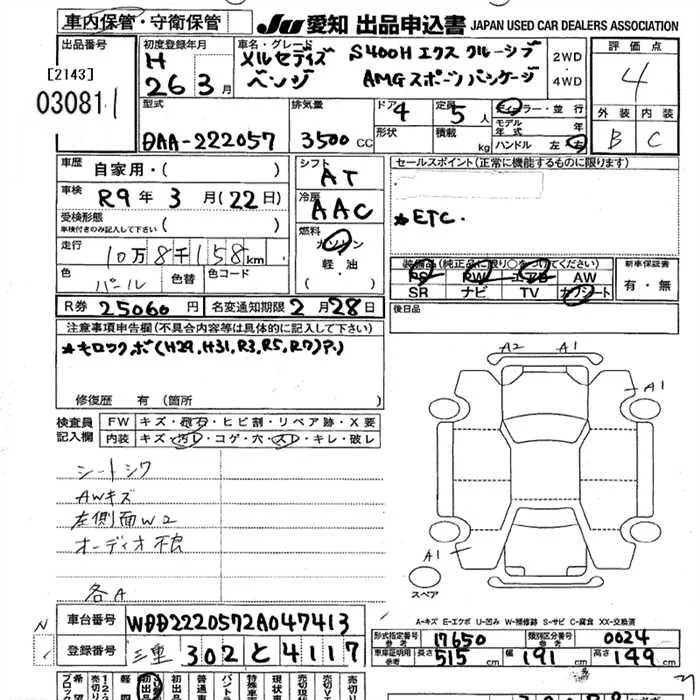 車内保管・守衛保管
JU 愛知 出品申込書 JAPAN USED CAR DEALERS ASSOCIATION
出品番号
[2143]
03081
初度登録年月
H
26 3月
車名・グレード
メルセデス S400H エクスクルーシブ
ベンツ AMGスポーツパッケージ
2WD
4WD
評価点
4
外装 内装
B C
型式
DAA-222057
排気量
3500 CC
ドア 4
形状
定員 5 人
積載 kg
ディーラー・並行
モデル年式 年
ハンドル 左 右
車歴
自家用・( )
車検
R9年 3月(22日)
受検形態
車検付きのみ記入して下さい ( )
走行
10万8千158km
色 パール
色替
色コード
シフト
AT
冷房
AAC
燃料
ガソリン
軽・油
( )
セールスポイント(正常に機能するものに限ります)
*ETC.
装備品(純正品に限り○をつけてください)
PS PW エアB AW
SR ナビ TV カワシート
新車保証書
有・無
R券 25060円
名変通知期限 2月28日
後日品
注意事項申告欄(不具合内容等は具体的に記入して下さい)
*キロクボ(H29,H31,R3,R5,R7)P.)
修復歴 有 (箇所 )
検査員記入欄
FW キズ・飛石・ヒビ割・リペア跡・X要
内装 キズ・汚レ・コゲ・穴・スレ・キレ・破レ
シートシワ
AWキズ
左側面W2
オーディオ不良
各A
A2 A1
A1
A1
スペア
A-キズ E-エクボ U-凹み W-補修跡 S-サビ C-腐食 XX-交換済
N
車台番号 WDD2220572A047413
登録番号 三重 302 と 4117
形式指定番号 参考 17650
類別区分番号 参考 0024
車庫証明用 参考 長さ 515cm 幅 191cm 高さ 149cm